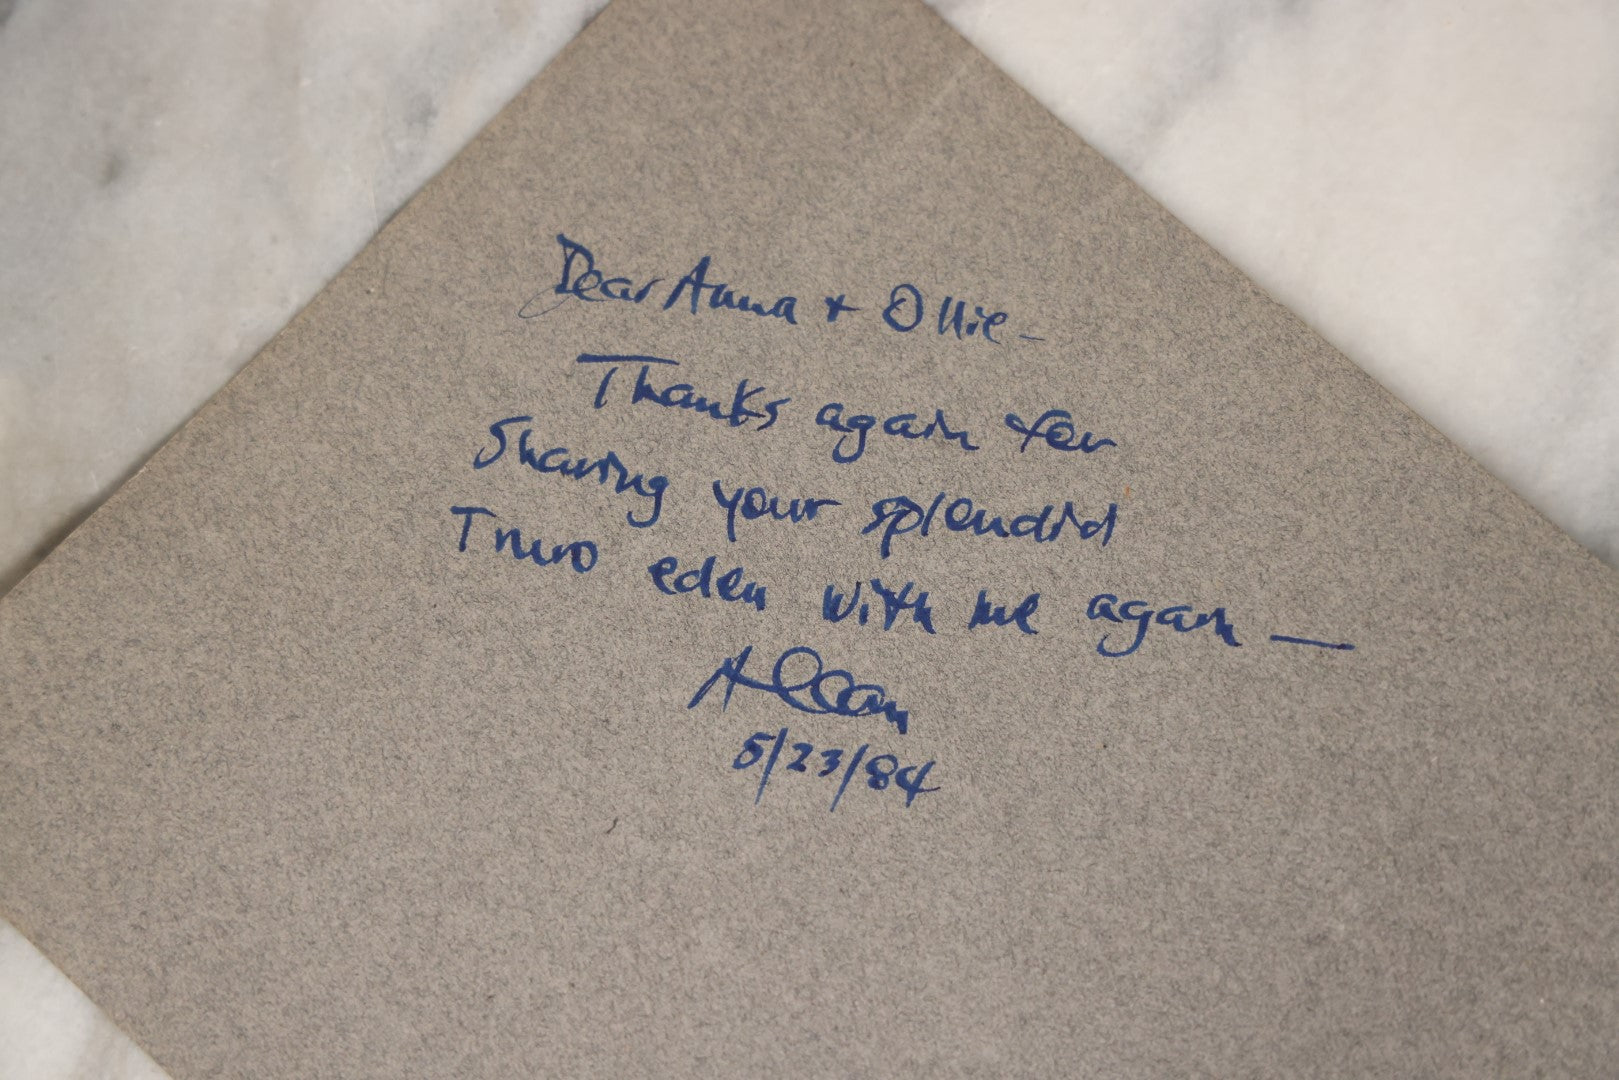 Dear Anna + Ollie –
Thanks again for
Sharing your splendid
Truro eden with me again —
Alan
5/23/84